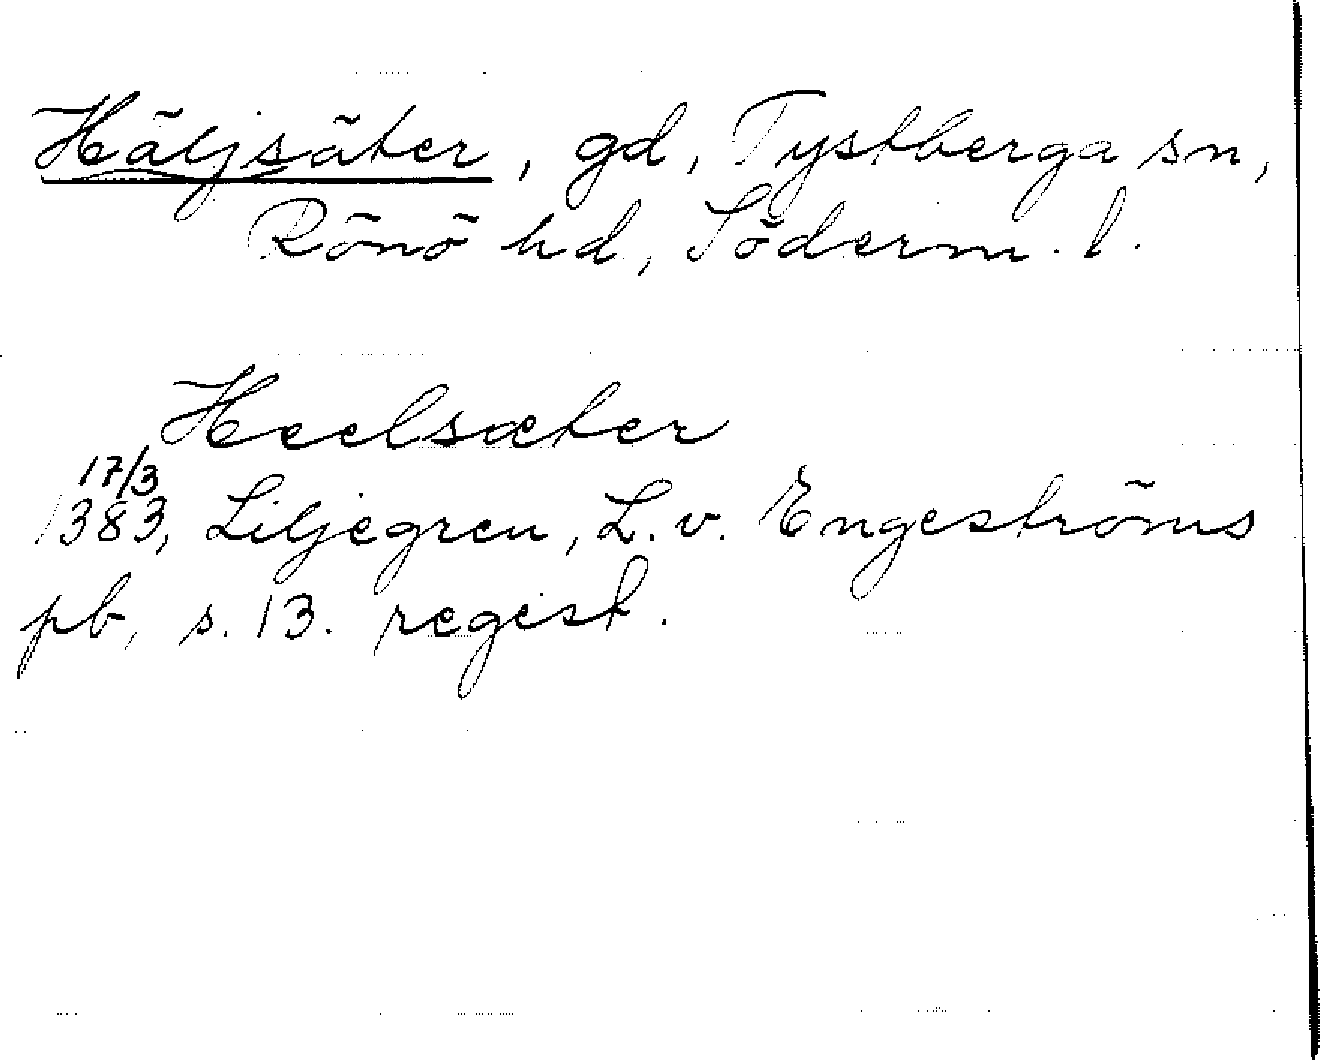 Häljsäter, gd, Tystberga sn,
Rönö hd, Söderm. l.
Heelsæter
17/3
1383, Liljegren, L. v. Engeströms
pb, s. 13. regist.